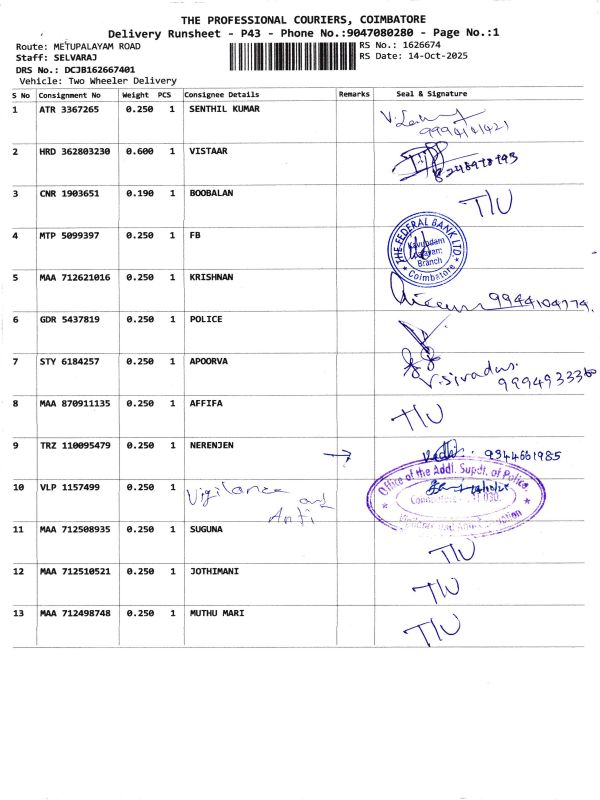 THE PROFESSIONAL COURIERS, COIMBATORE
Delivery Runsheet - P43 - Phone No.:9047080280 - Page No.:1
Route: METUPALAYAM ROAD RS No.: 1626674
Staff: SELVARAJ RS Date: 14-Oct-2025
DRS No.: DCJB162667401
Vehicle: Two Wheeler Delivery
S No Consignment No Weight PCS Consignee Details Remarks Seal & Signature
1 ATR 3367265 0.250 1 SENTHIL KUMAR
2 HRD 362803230 0.600 1 VISTAAR
3 CNR 1903651 0.190 1 BOOBALAN T/U
4 MTP 5099397 0.250 1 FB
THE FEDERAL BANK LTD.
Branch
Coimbatore
5 MAA 712621016 0.250 1 KRISHNAN 9944104774
6 GDR 5437819 0.250 1 POLICE
7 STY 6184257 0.250 1 APOORVA V.Sivadas. 9994933360
8 MAA 870911135 0.250 1 AFFIFA T/U
9 TRZ 110095479 0.250 1 NERENJEN → 9344661985
10 VLP 1157499 0.250 1 Vigilance and Anti
Office of the Addl. Supdt. of Police,
11 MAA 712508935 0.250 1 SUGUNA T/U
12 MAA 712510521 0.250 1 JOTHIMANI T/U
13 MAA 712498748 0.250 1 MUTHU MARI T/U